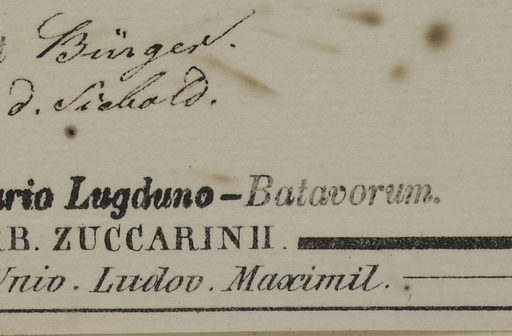 Bürger.
d. Siebold.
ario Lugduno-Batavorum.
RB. ZUCCARINII.
Univ. Ludov. Maximil.